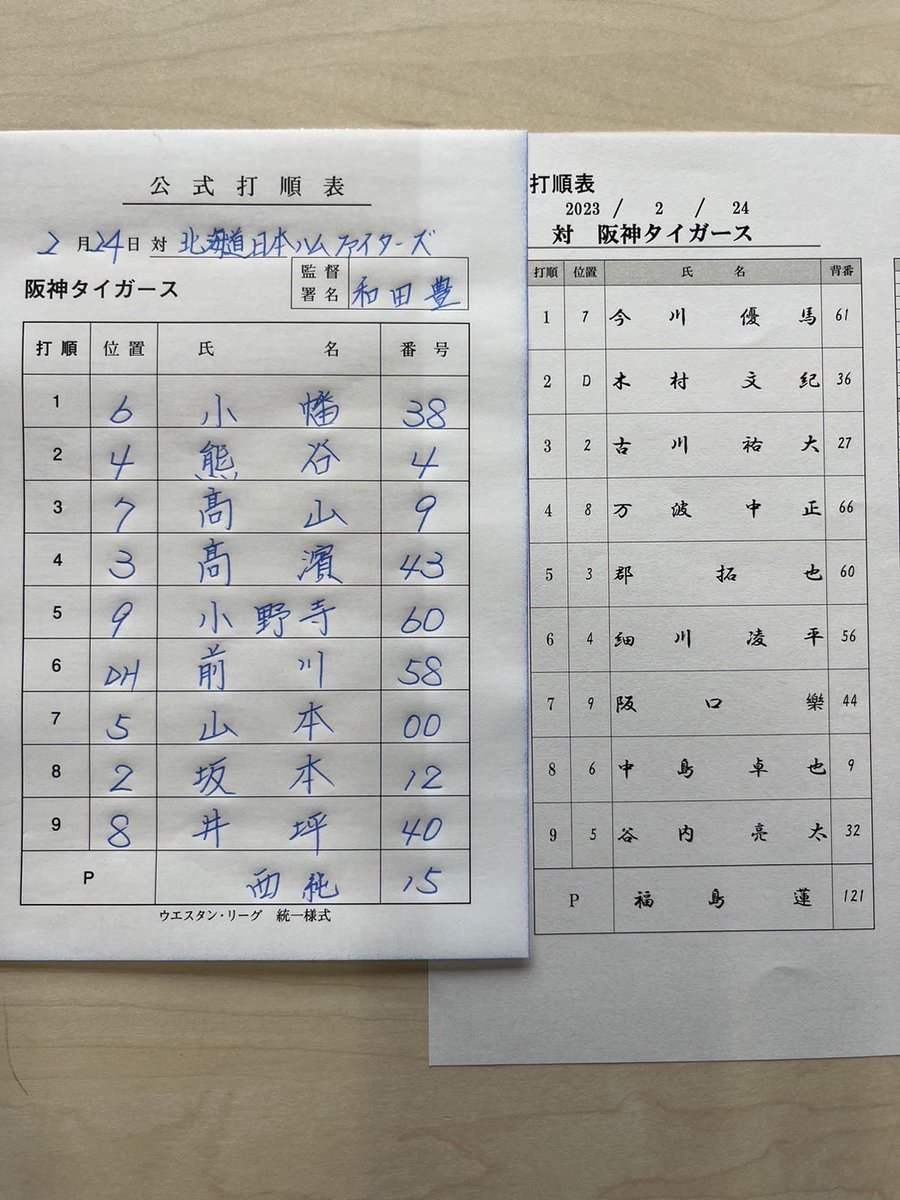 公式打順表
2月24日 対 北海道日本ハムファイターズ
阪神タイガース 監督署名 和田豊
打順 位置 氏名 番号
1 6 小幡 38
2 4 熊谷 4
3 7 髙山 9
4 3 髙濱 43
5 9 小野寺 60
6 DH 前川 58
7 5 山本 00
8 2 坂本 12
9 8 井坪 40
P 西純 15
ウエスタン・リーグ 統一様式
打順表
2023 / 2 / 24
対 阪神タイガース
打順 位置 氏名 背番
1 7 今川優馬 61
2 D 木村文紀 36
3 2 古川祐大 27
4 8 万波中正 66
5 3 郡拓也 60
6 4 細川凌平 56
7 9 阪口樂 44
8 6 中島卓也 9
9 5 谷内亮太 32
P 福島蓮 121